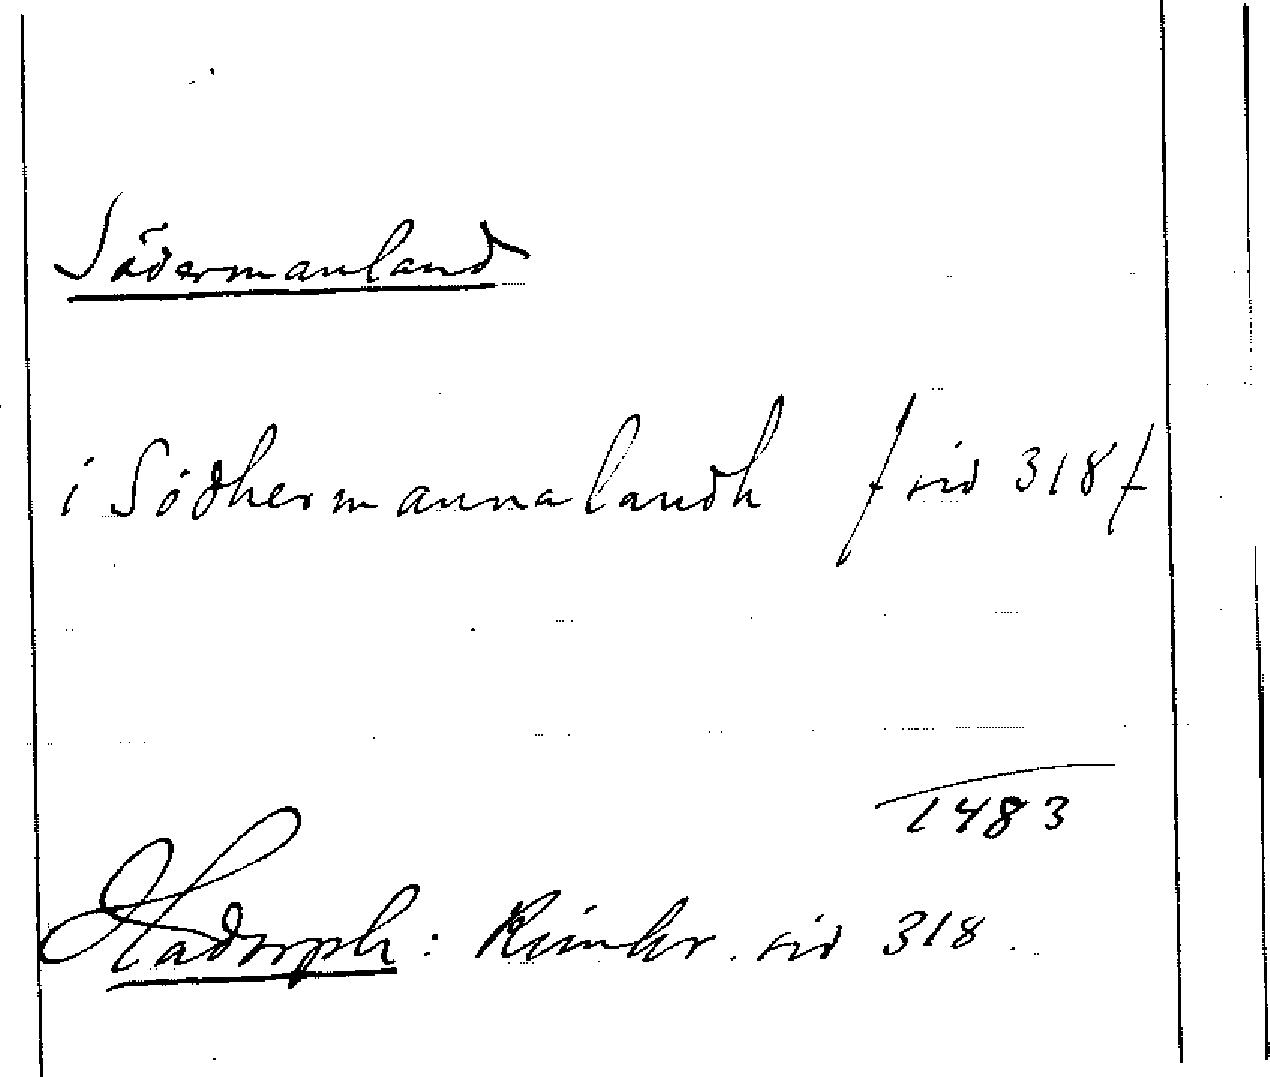 Södermanland
i Södhermannalandh / sid 318 /
1483
Hadorph: Rimkr. sid 318.